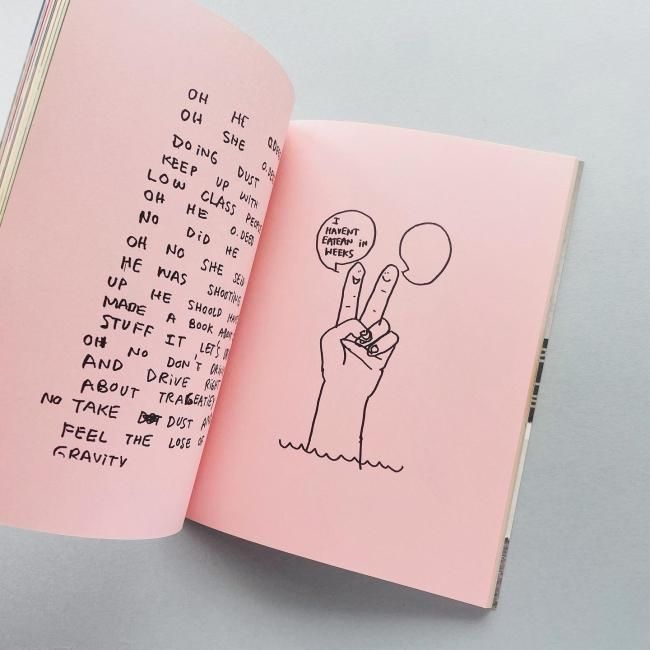 OH HE
OH SHE
DOING DUST
KEEP UP WITH
LOW CLASS
OH HE O.DEED
NO DID HE
OH NO SHE SED
HE WAS SHOOTING
UP HE SHOOLD
MADE A BOOK
STUFF IT LET'S
OH NO DON'T
AND DRIVE RIGHT
ABOUT
NO TAKE DUST
FEEL THE LOSE OF
GRAVITY
I
HAVENT
EATEAN IN
WEEKS